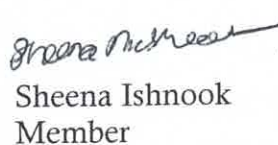 Sheena
Sheena Ishnook
Member